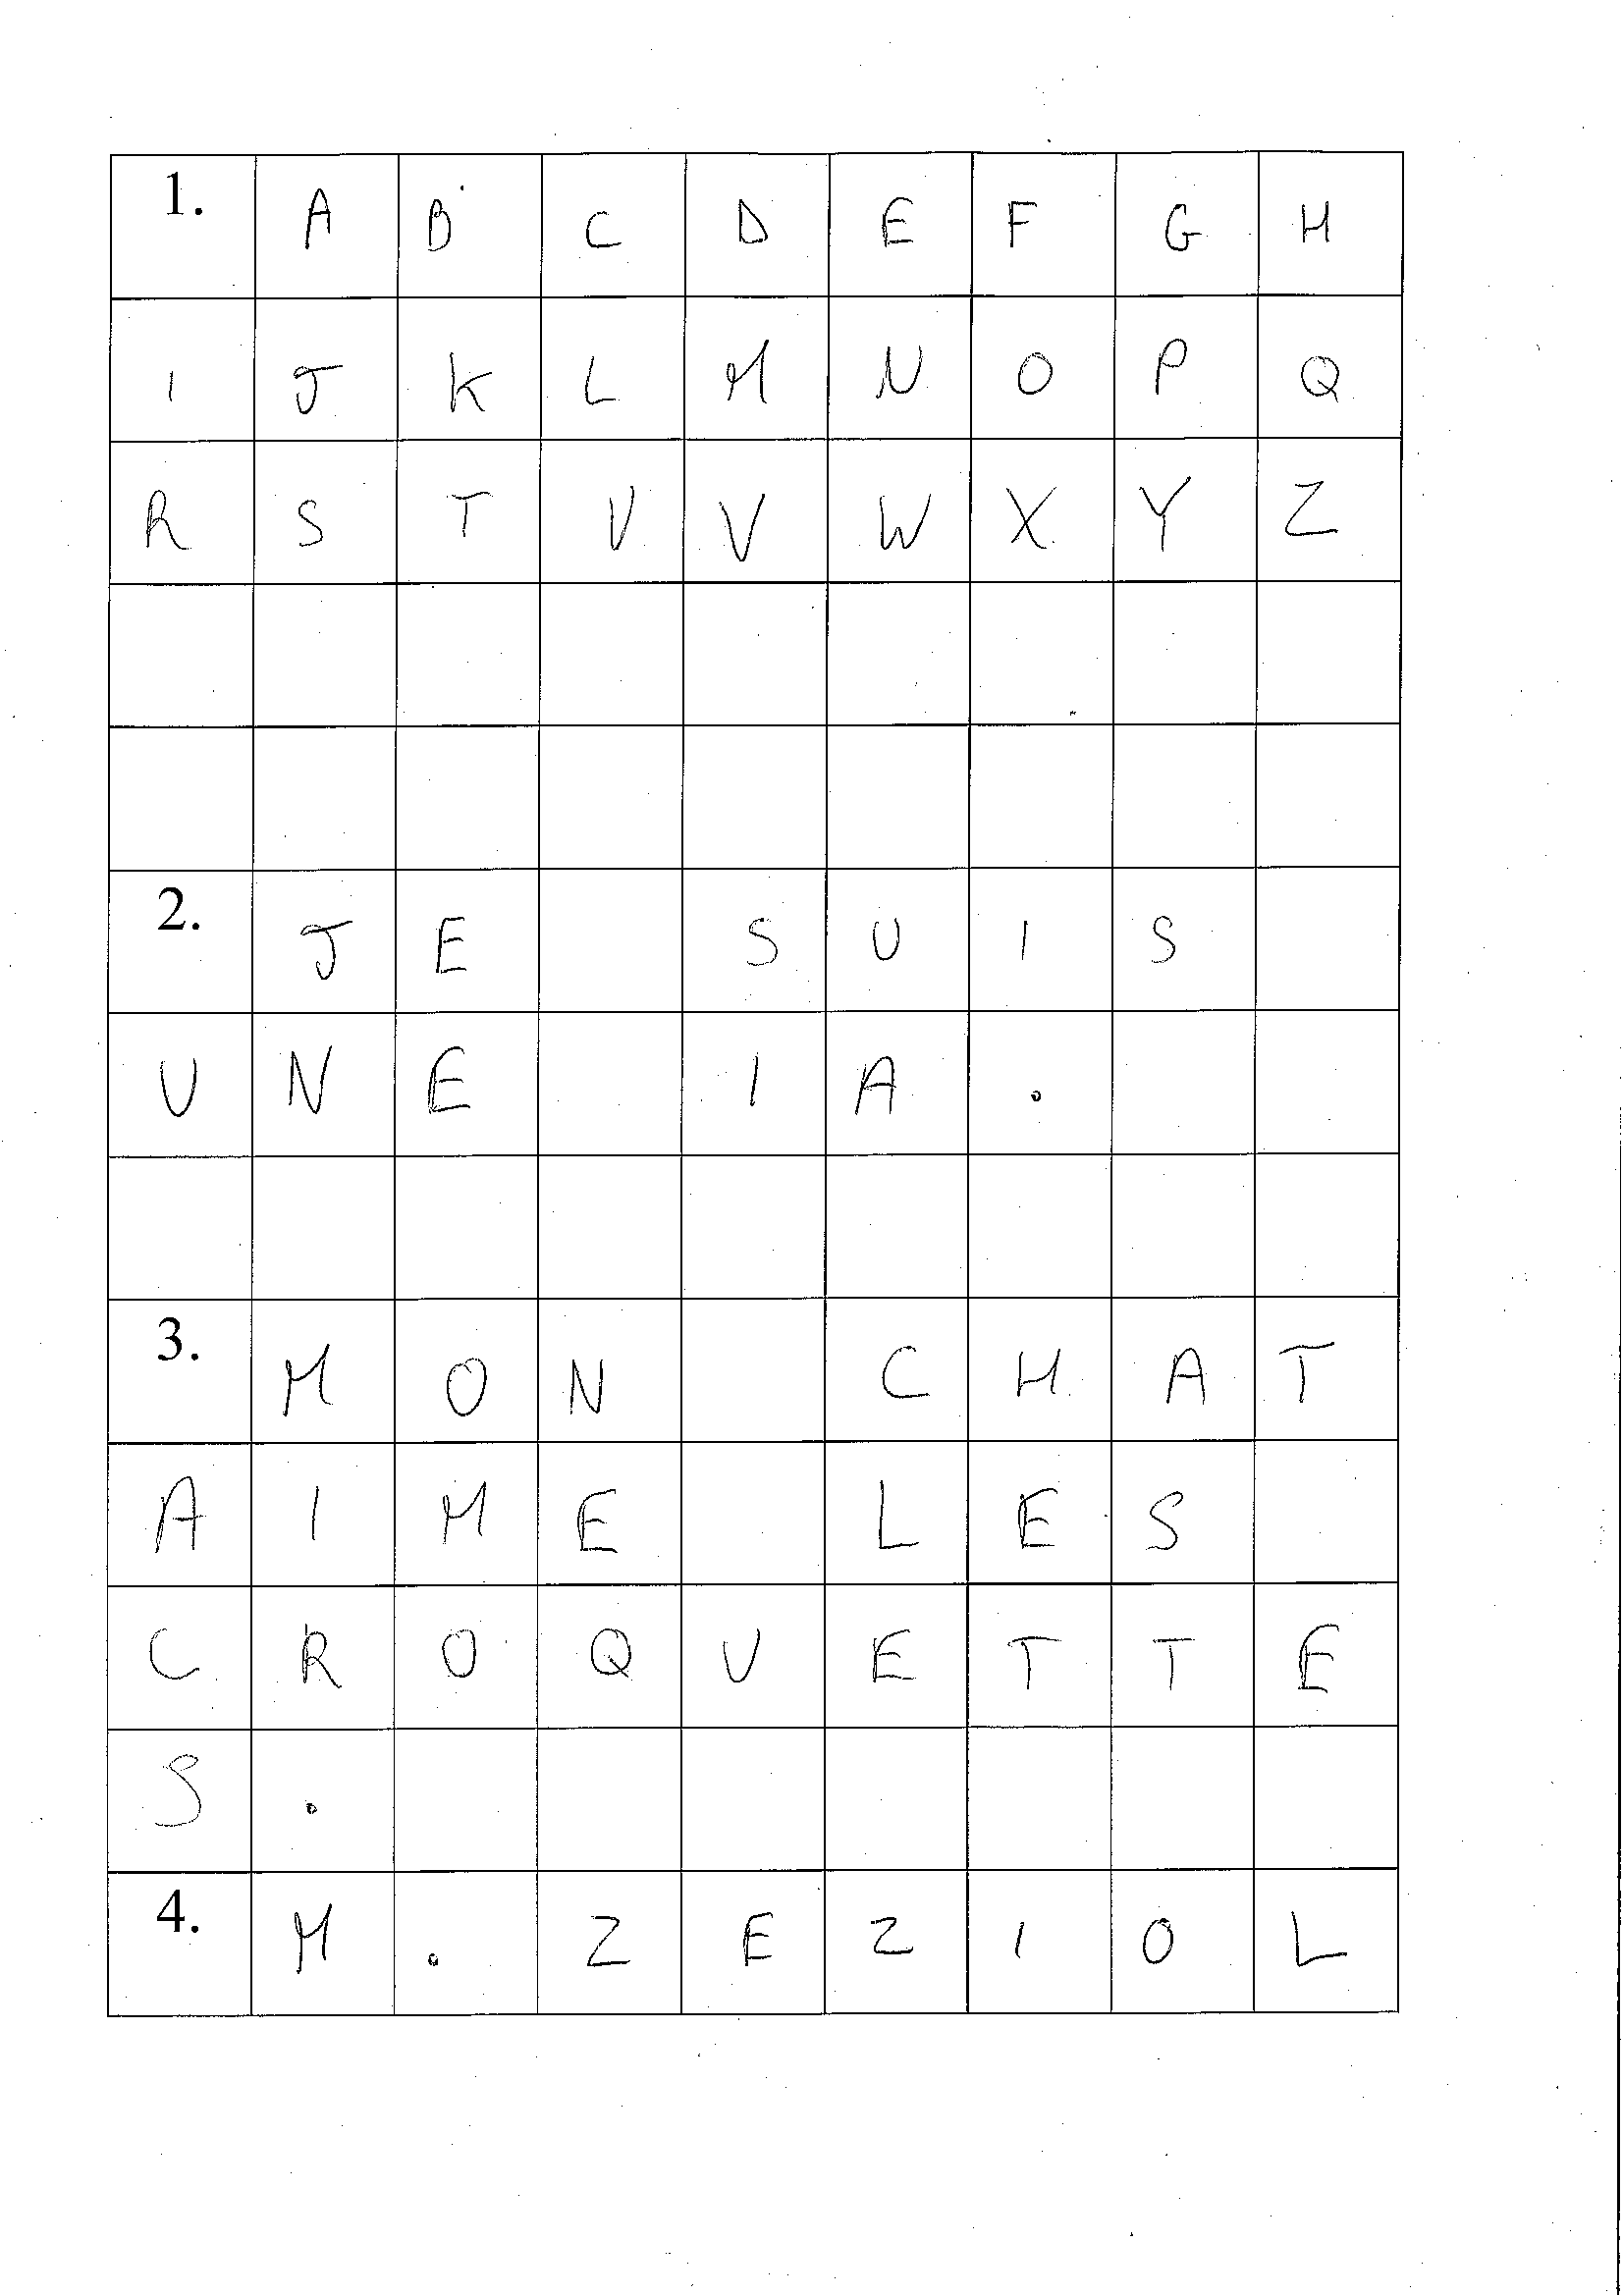 1. A B C D E F G H
I J K L M N O P Q
R S T U V W X Y Z
2. J E S U I S
U N E I A .
3. M O N C H A T
A I M E L E S
C R O Q U E T T E
S .
4. M . Z E Z I O L